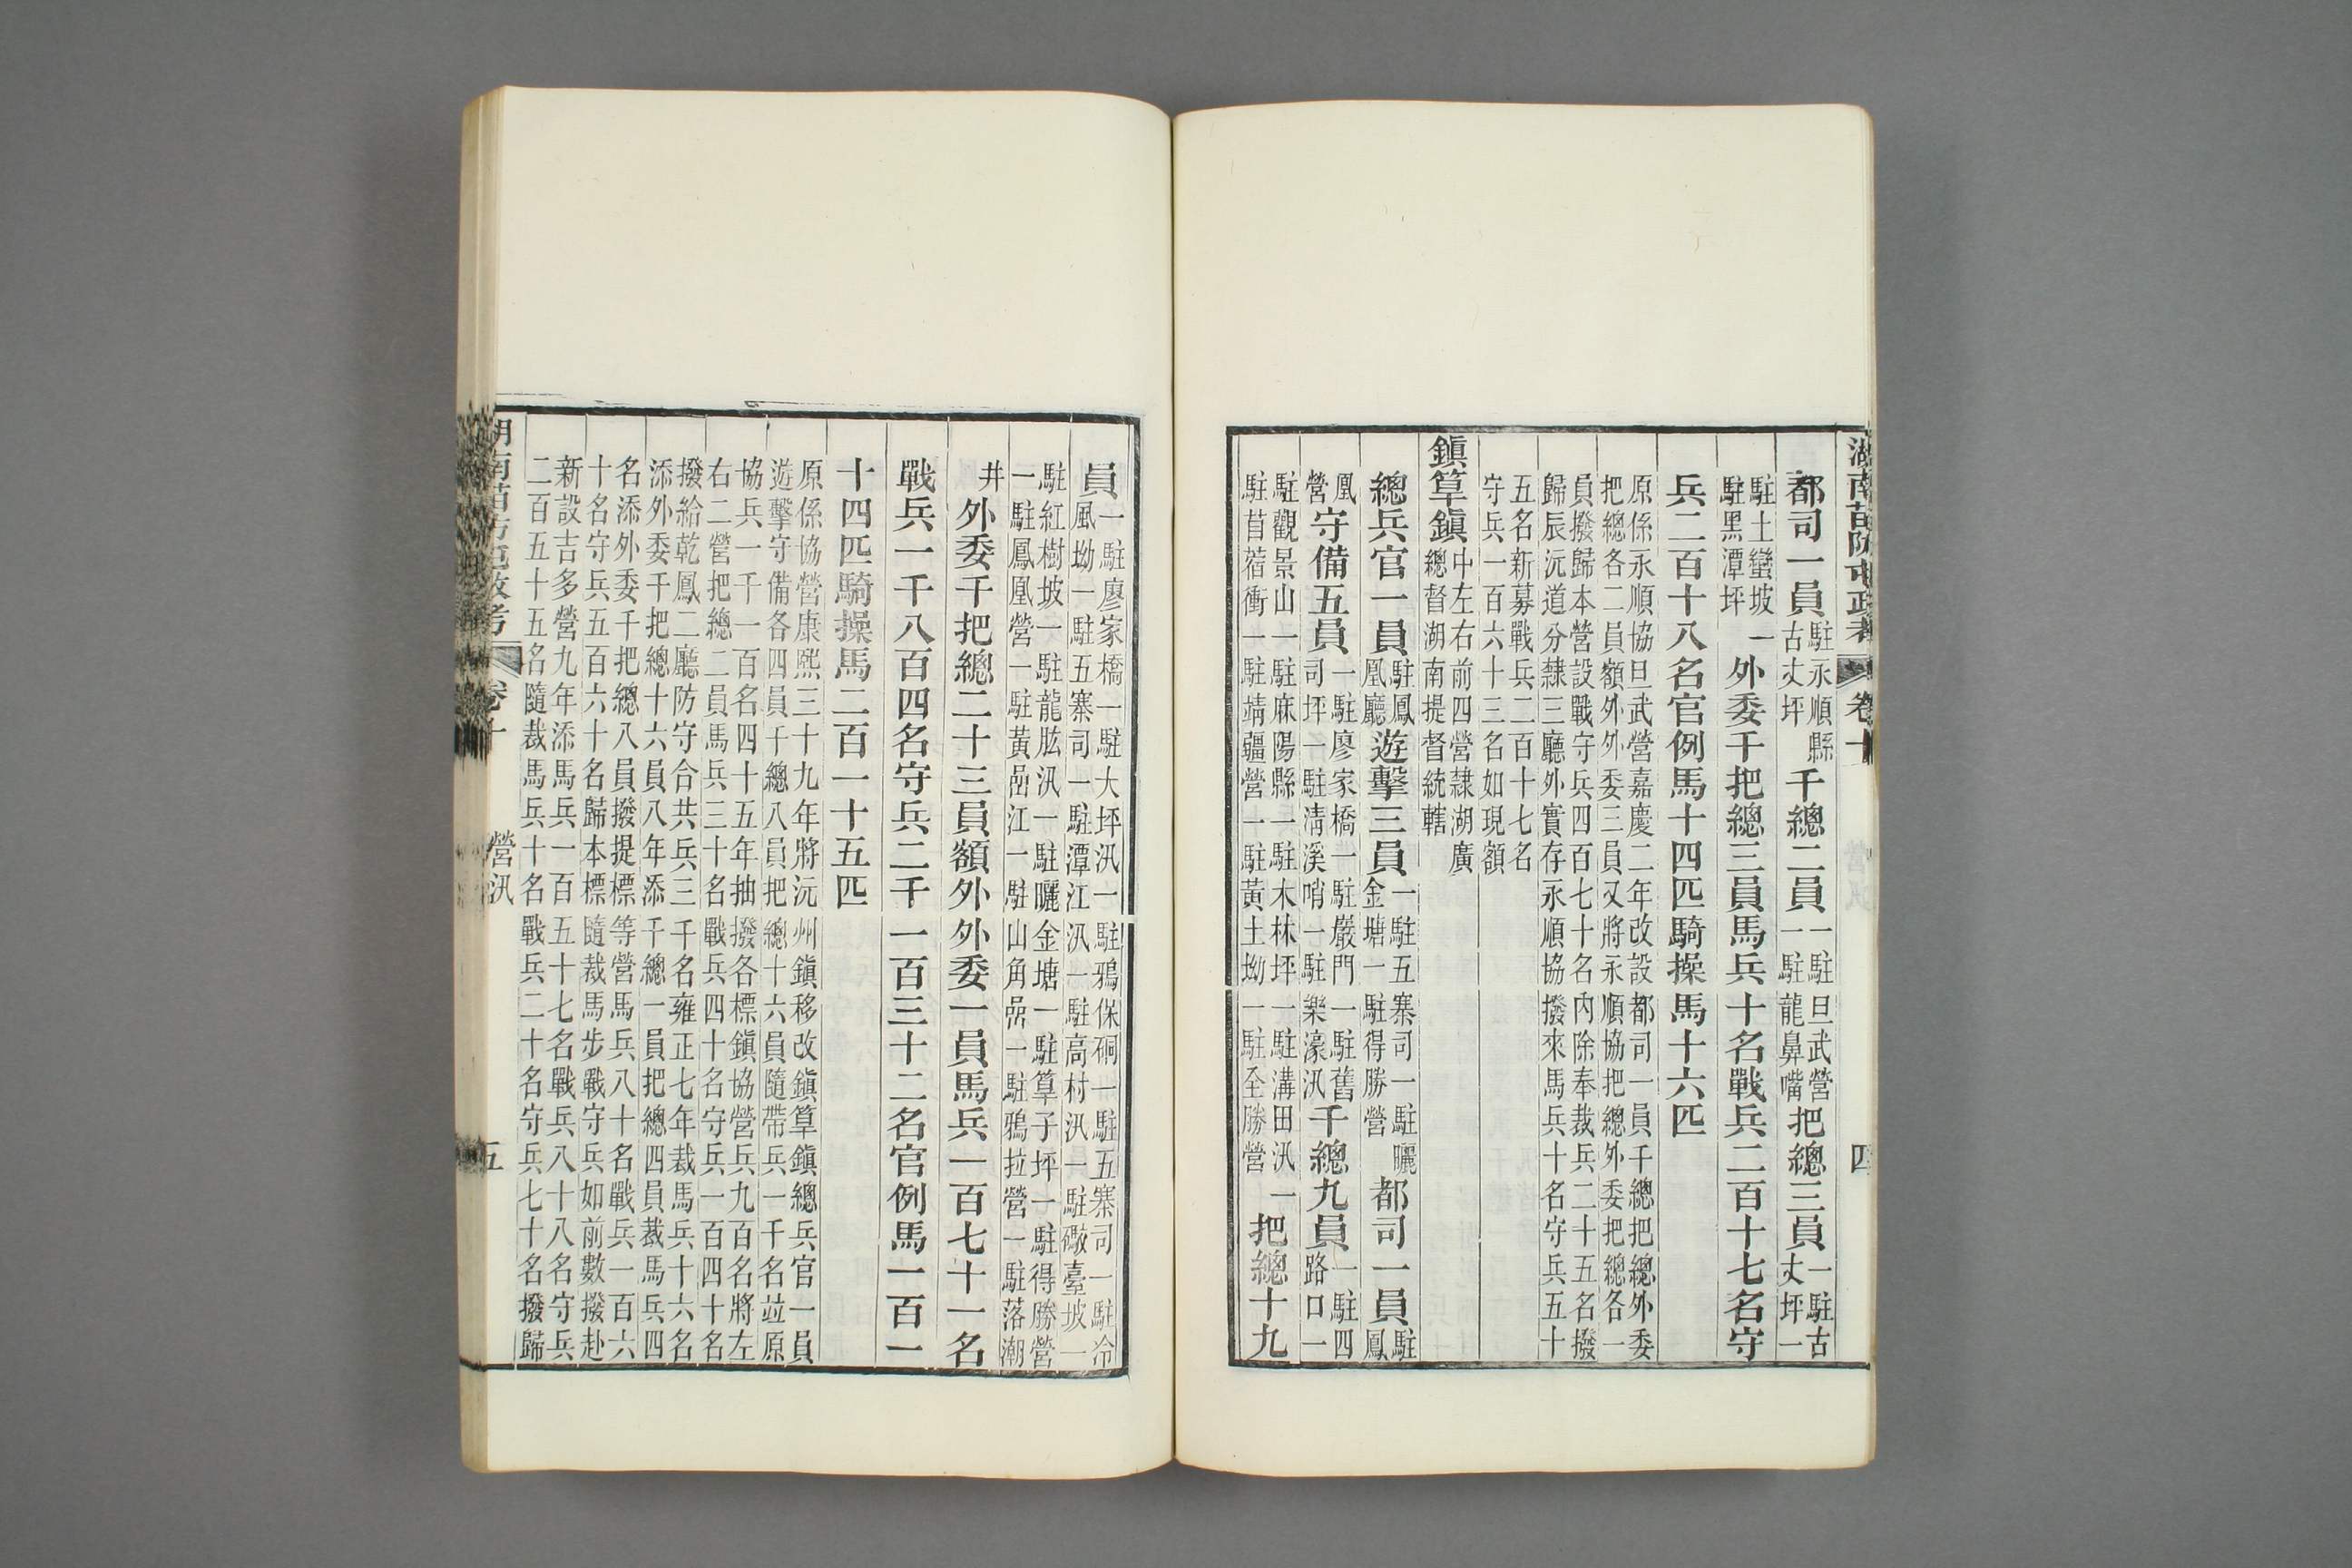 湖南苗防屯政考 卷十 四
都司一員駐永順縣古丈坪千總二員一駐旦武營一駐龍鼻嘴把總三員一駐古丈坪一
駐土蠻坡一駐黑潭坪外委千把總三員馬兵十名戰兵二百十七名守
兵二百十八名官例馬十四匹騎操馬十六匹
原係永順協旦武營嘉慶二年改設都司一員千總把總外委
把總各二員額外外委三員又將永順協把總外委把總各一
員撥歸本營設戰守兵四百七十名內除奉裁兵二十五名撥
歸辰沅道分隸三廳外實存永順協撥來馬兵十名守兵五十
五名新募戰兵二百十七名
守兵一百六十三名如現額
鎮筸鎮中左右前四營隸湖廣總督湖南提督統轄
總兵官一員駐鳳凰廳遊擊三員一駐五寨司一駐曬金塘一駐得勝營都司一員駐鳳
凰營守備五員一駐廖家橋一駐巖門一駐舊司坪一駐清溪哨一駐樂濠汛千總九員一駐四路口一
駐觀景山一駐麻陽縣一駐木林坪一駐溝田汛一駐苜蓿衝一駐靖疆營一駐黃土坳一駐全勝營把總十九
員一駐廖家橋一駐大坪汛一駐鴉保硐一駐五寨司一駐冷風坳一駐五寨司一駐潭江汛一駐高村汛一駐礮臺坡一
駐紅樹坡一駐龍肱汛一駐曬金塘一駐筸子坪一駐得勝營一駐鳳凰營一駐黃嵒江一駐山角嵒一駐鴉拉營一駐落潮
井外委千把總二十三員額外外委一員馬兵一百七十一名
戰兵一千八百四名守兵二千一百三十二名官例馬一百一
十四匹騎操馬二百一十五匹
原係協營康熙三十九年將沅州鎮移改鎮筸鎮總兵官一員
遊擊守備各四員千總八員把總十六員隨帶兵一千名竝原
協兵一千一百名四十五年抽撥各標鎮協營兵九百名將左
右二營把總二員馬兵三十名戰兵四十名守兵一百四十名
撥給乾鳳二廳防守合共兵三千名雍正七年裁馬兵十六名
添外委千把總十六員八年添千總一員把總四員裁馬兵四
名添外委千把總八員撥提標等營馬兵八十名戰兵一百六
十名守兵五百六十名歸本標隨裁馬步戰守兵如前數撥赴
新設吉多營九年添馬兵一百五十七名戰兵八十八名守兵
二百五十五名隨裁馬兵十名戰兵二十名守兵七十名撥歸
卷十 營汛 五